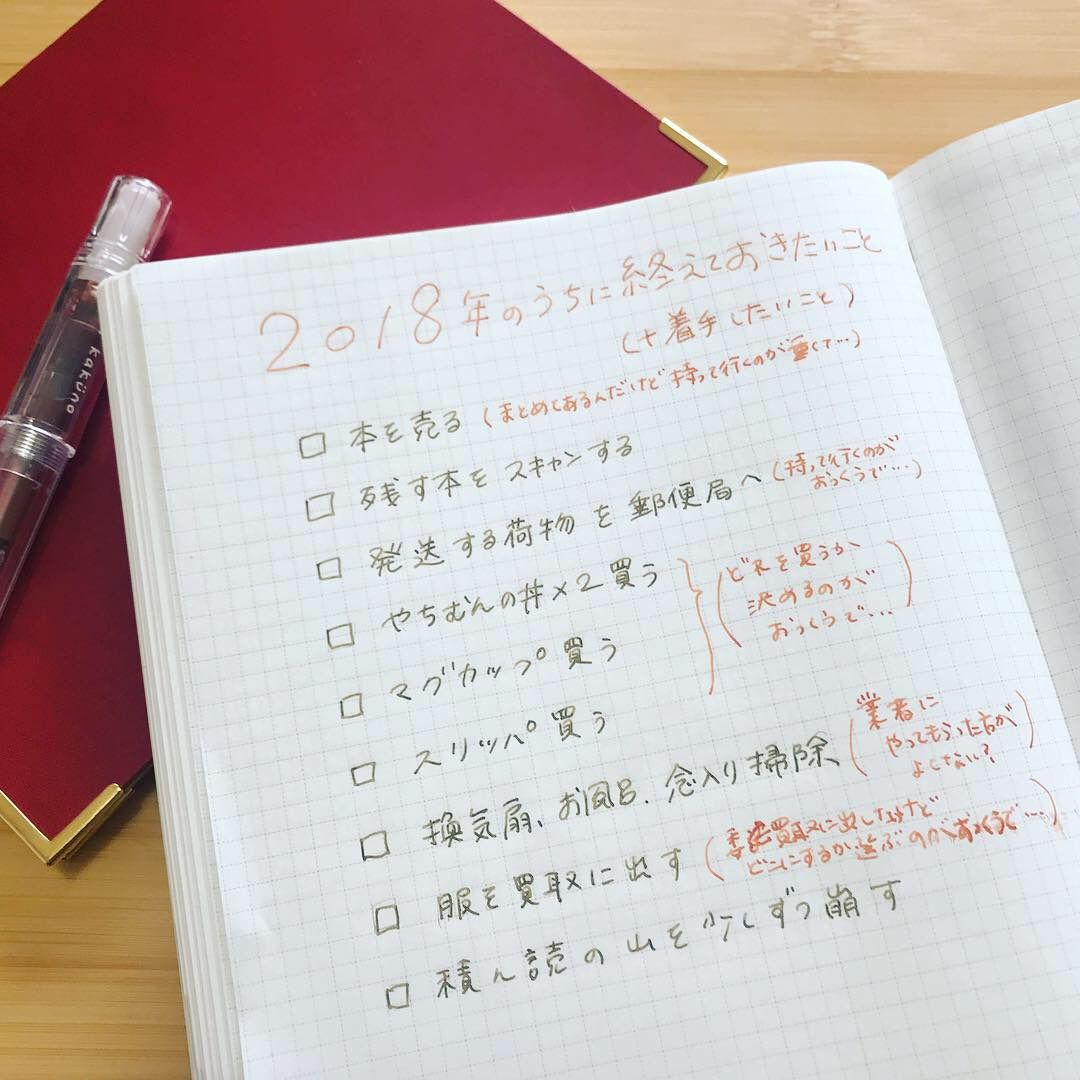 kaküno
2018年のうちに終えておきたいこと
(+着手したいこと)
□ 本を売る (まとめてあるんだけど持って行くのが重くて…)
□ 残す本をスキャンする
□ 発送する荷物を郵便局へ (持って行くのが
おっくうで…)
□ やちむんの丼×2買う
□ マグカップ買う
□ スリッパ買う
(どれを買うか
決めるのが
おっくうで…)
□ 換気扇、お風呂、念入り掃除 (業者に
やってもらった方が
よくない?)
□ 服を買取に出す (買取に出したいけど
どこにするか選ぶのがおっくうで…)
□ 積ん読の山を少しずつ崩す